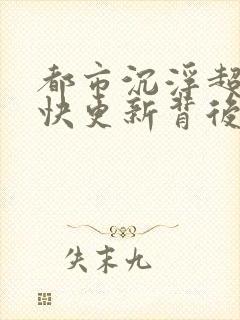 都市沉浮超
快更新背後
失末九